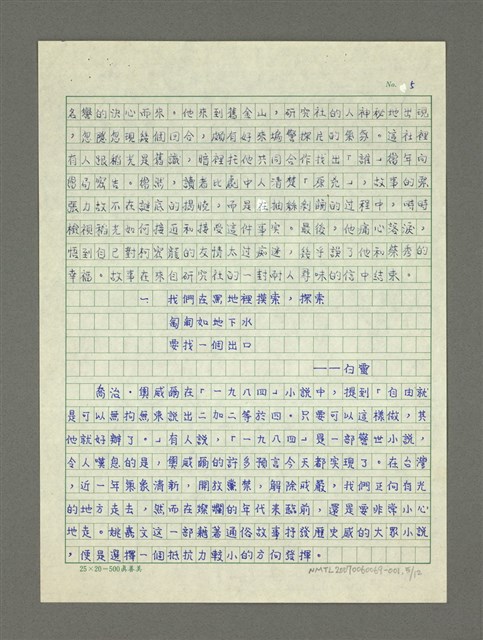 No. 5
名譽的決心而來。他來到舊金山,研究社的人神秘地出現
,忽應忽現幾個回合,頗有好來塢驚探片的氣氛。這社裡
有人跟稻光是舊識,暗裡托他共同合作找出「誰」當年向
當局密告。當然,讀者比劇中人清楚「原兇」,故事的緊
張力故不在謎底的揭曉,而是在抽絲剝繭的過程中,時時
檢視稻光如何接近和接受這件事實。最後,他痛心落淚,
悟到自己對柯宏龍的友情太過痴迷,幾乎毀了他和蔡秀的
幸福。故事在來自研究社的一封耐人尋味的信中結束。
一 我們在黑地裡摸索,探索
匍匐如地下水
要找一個出口
——白靈
喬治・奧威爾在「一九八四」小說中,提到「自由就
是可以無拘無束說出二加二等於四。只要可以這樣做,其
他就好辦了。」有人說,「一九八四」是一部警世小說,
令人嘆息的是,奧威爾的許多預言今天都實現了。在台灣
,近一年氣象清新,開放黨禁,解除戒嚴,我們正向有光
的地方走去,然而在燦爛的年代來臨前,還是要非常小心
地走。姚嘉文這一部藉著通俗故事抒發歷史感的大眾小說
,便是選擇一個抵抗力較小的方向發揮。
25×20=500真善美
NMTL20070060069-001.5/12